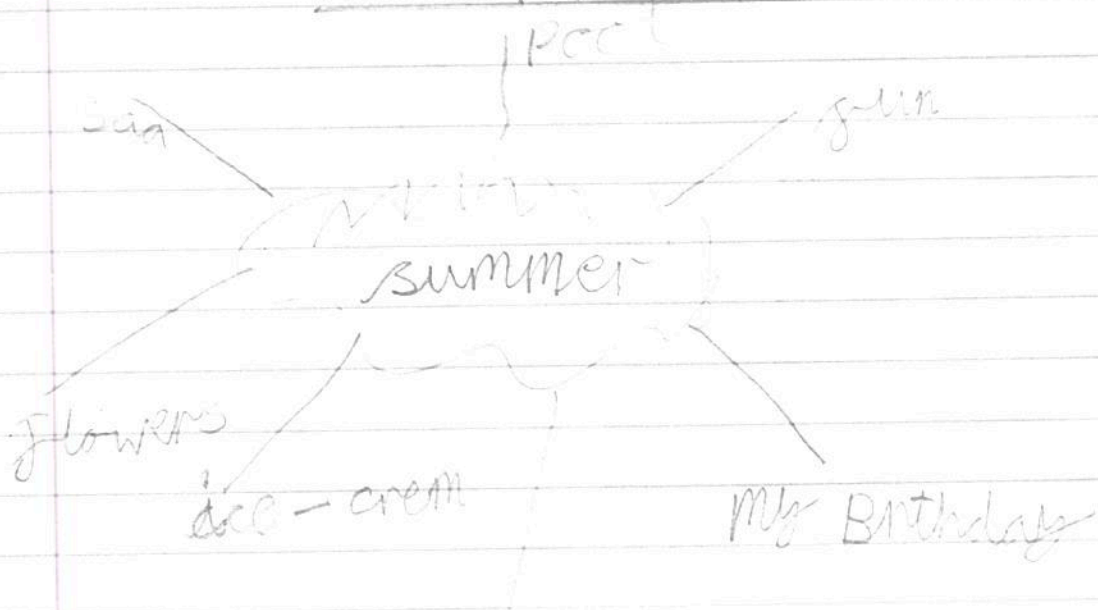 sun
summer
flowers
ice - crem
My Birthday